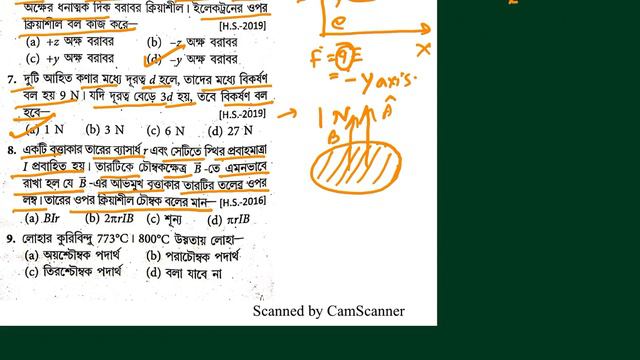 অক্ষের ধনাত্মক দিক বরাবর ক্রিয়াশীল। ইলেকট্রনের ওপর
ক্রিয়াশীল বল কাজ করে— [H.S.-2019]
(a) +z অক্ষ বরাবর (b) –z অক্ষ বরাবর
(c) +y অক্ষ বরাবর (d) –y অক্ষ বরাবর
7. দুটি আহিত কণার মধ্যে দূরত্ব d হলে, তাদের মধ্যে বিকর্ষণ
বল হয় 9 N। যদি দূরত্ব বেড়ে 3d হয়, তবে বিকর্ষণ বল
হবে— [H.S.-2019]
(a) 1 N (b) 3 N (c) 6 N (d) 27 N
8. একটি বৃত্তাকার তারের ব্যাসার্ধ r এবং সেটিতে স্থির প্রবাহমাত্রা
I প্রবাহিত হয়। তারটিকে চৌম্বকক্ষেত্র B-তে এমনভাবে
রাখা হল যে B-এর অভিমুখ বৃত্তাকার তারটির তলের ওপর
লম্ব। তারের ওপর ক্রিয়াশীল চৌম্বক বলের মান— [H.S.-2016]
(a) BIr (b) 2πrIB (c) শূন্য (d) πrIB
9. লোহার কুরিবিন্দু 773°C। 800°C উষ্ণতায় লোহা—
(a) অয়শ্চৌম্বক পদার্থ (b) পরাচৌম্বক পদার্থ
(c) তিরশ্চৌম্বক পদার্থ (d) বলা যাবে না
e
x
F = qE
= –y axis.
→ 1 N
B A
Scanned by CamScanner